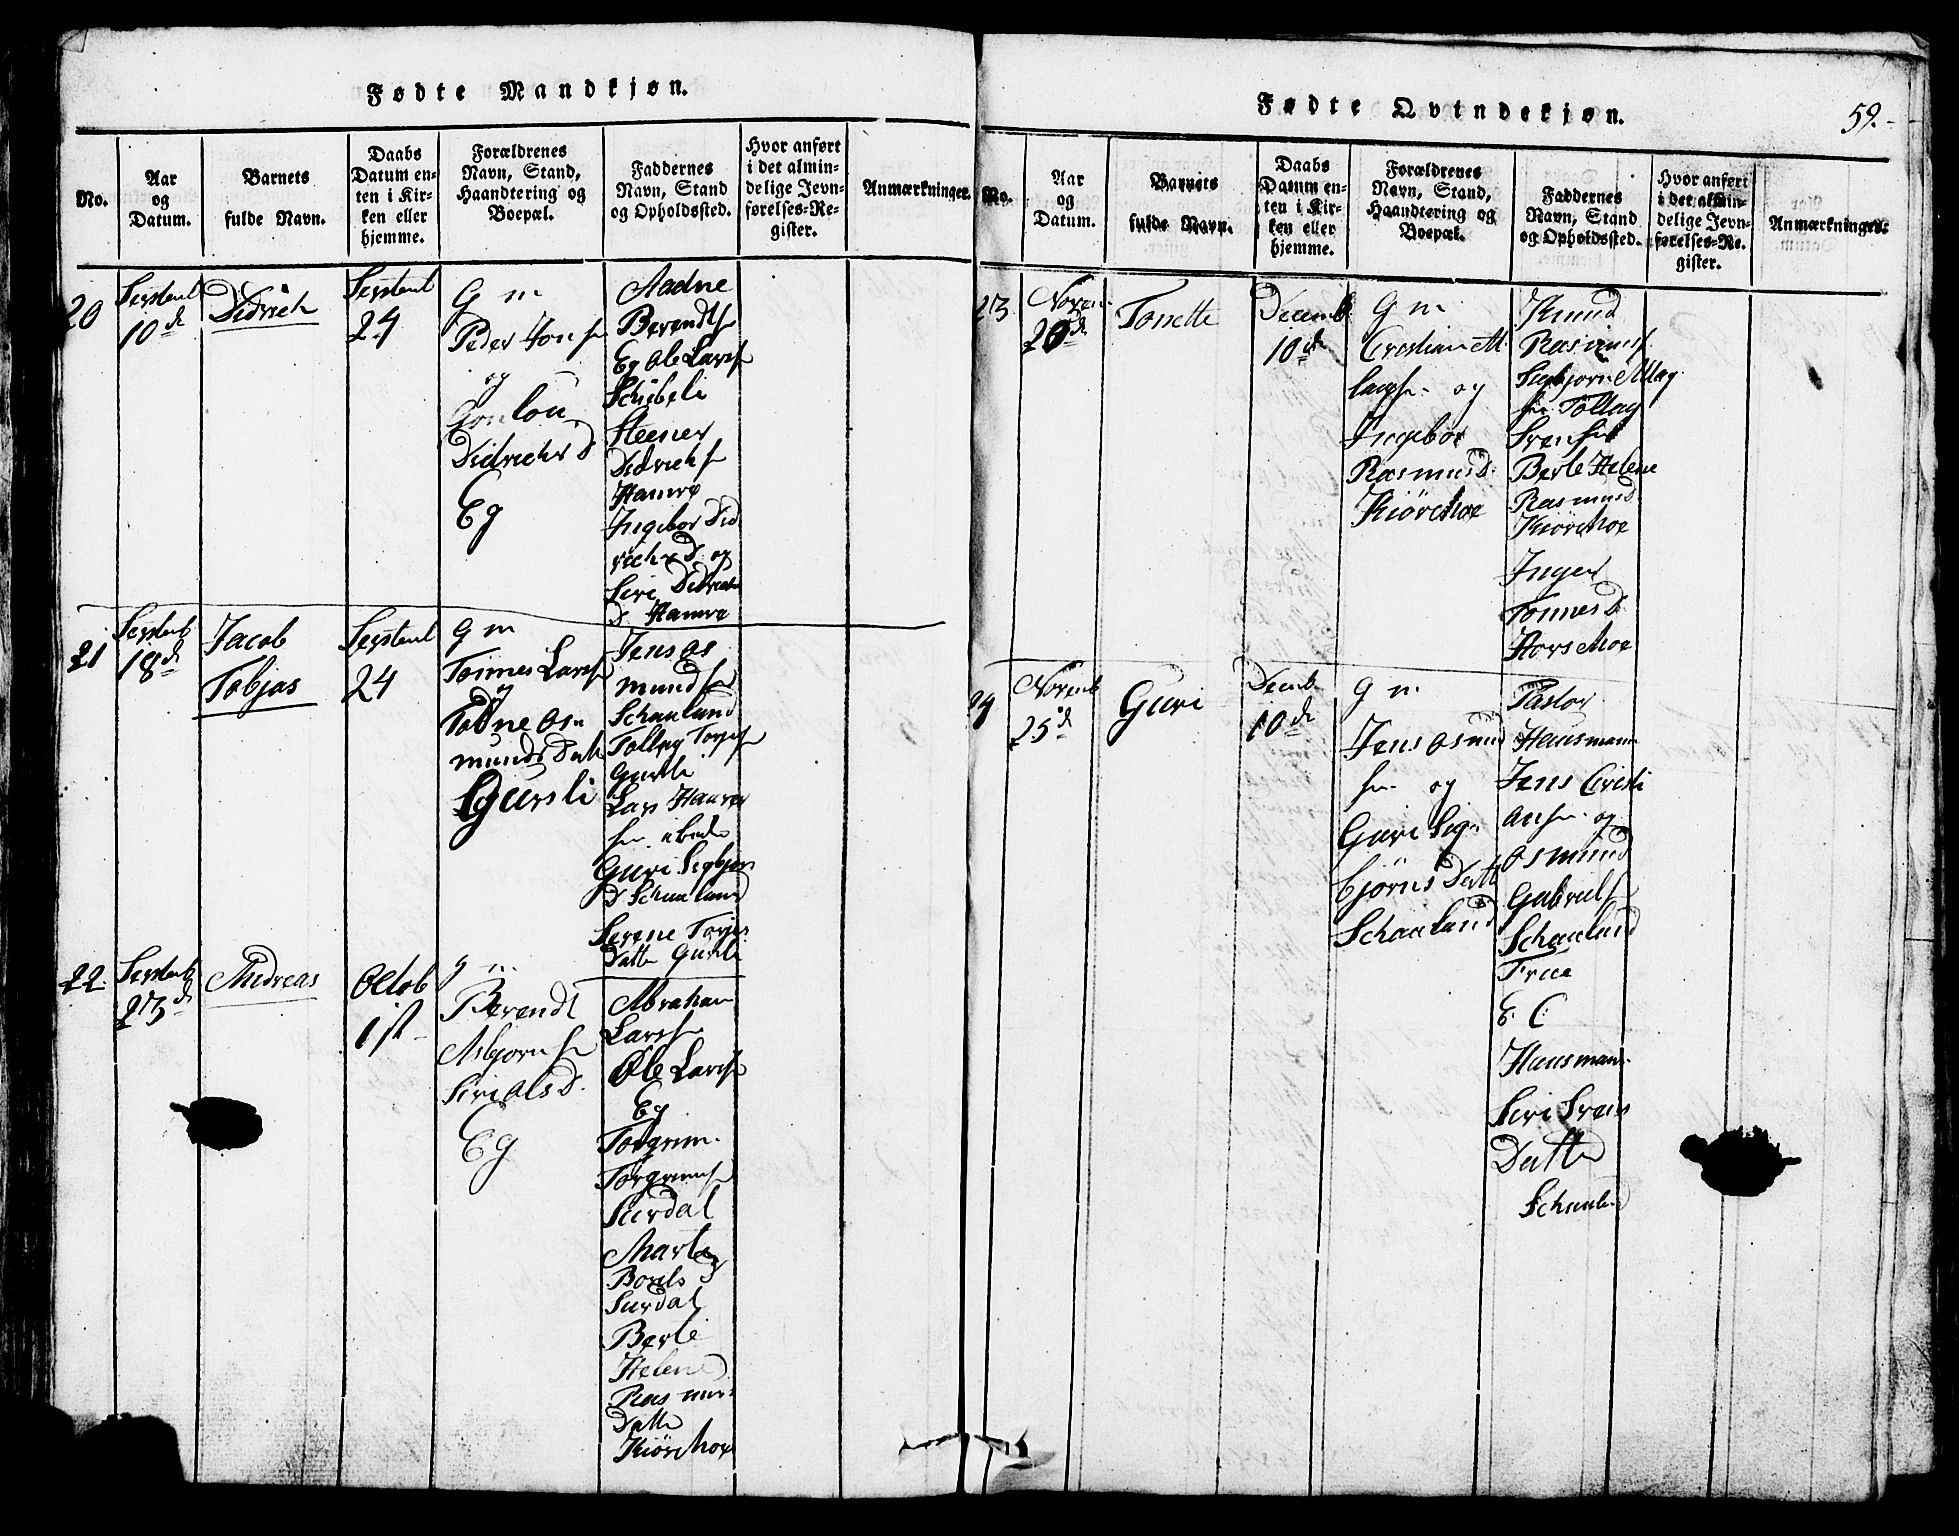 Fødte Mandkjøn.
No.
Aar
og
Datum.
Barnets
fulde Navn.
Daabs
Datum en-
ten i Kir-
ken eller
hjemme.
Forældrenes
Navn, Stand,
Haandtering og
Boepæl.
Faddernes
Navn, Stand
og Opholdssted.
Hvor anført
i det almin-
delige Jevn-
førelses-Re-
gister.
Anmærkninger.
20
Septemb
10 d
Didrich
Septemb
24
G m
Peder Jons
og
Didrichs D
Eg
Aadne
Berendts
Eg Ole Lars
Schibeli
Steener
Didrichs
Hamre
Ingebor Did
richs D. og
Siri Didrich
D. Hamre
21
Septemb
18 d
Jacob
Tobjas
Septemb
24
G m
Tønnes Lars
og
Tobine Os
munds Datt
Gursli
Jens Os
munds
Schaaland
Tollag Torjus
Gursli
Lars
Guri Sigbjørn
D Schaaland
Serene Torjus
Datte Gursli
22.
Septemb
23 d
Andreas
Octob
1st
g m
Berendt
Asbjorns
Siri Ols D.
Eg
Abraham
Lars
Ole Lars
Eg
Torgrim
Torgrims
Surdal
Marte
Boels
Surdal
Berte
Helene
Rasmus
Datte
Kiørrehoe
Fødte Qvindekjøn.
59.
No.
Aar
og
Datum.
Barnets
fulde Navn.
Daabs
Datum en-
ten i Kir-
ken eller
hjemme.
Forældrenes
Navn, Stand,
Haandtering og
Boepæl.
Faddernes
Navn, Stand
og Opholdssted.
Hvor anført
i det almin-
delige Jevn-
førelses-Re-
gister.
Anmærkninger.
23
Novem
20 d
Tonette
Decemb
10 d
G m
Cristian
og
Ingebor
Rasmus D.
Kiørrehoe
Knud
Rasmus
Sigbjorn
Tollag
Svens
Berte Helene
Rasmus D.
Kiørrehoe
Inger
Tonnes D.
24
Novemb
25 d
Guri
Decemb
10 d
G m
Jens Osmund
og
Guri Sig
bjørns Datt
Schaaland
Pastor
Hausmann
Jens Cristi
ans og
Osmund
Gabriels
Schaaland
Frue
E. C.
Hausmann
Siri Svens
Datte
Schaaland